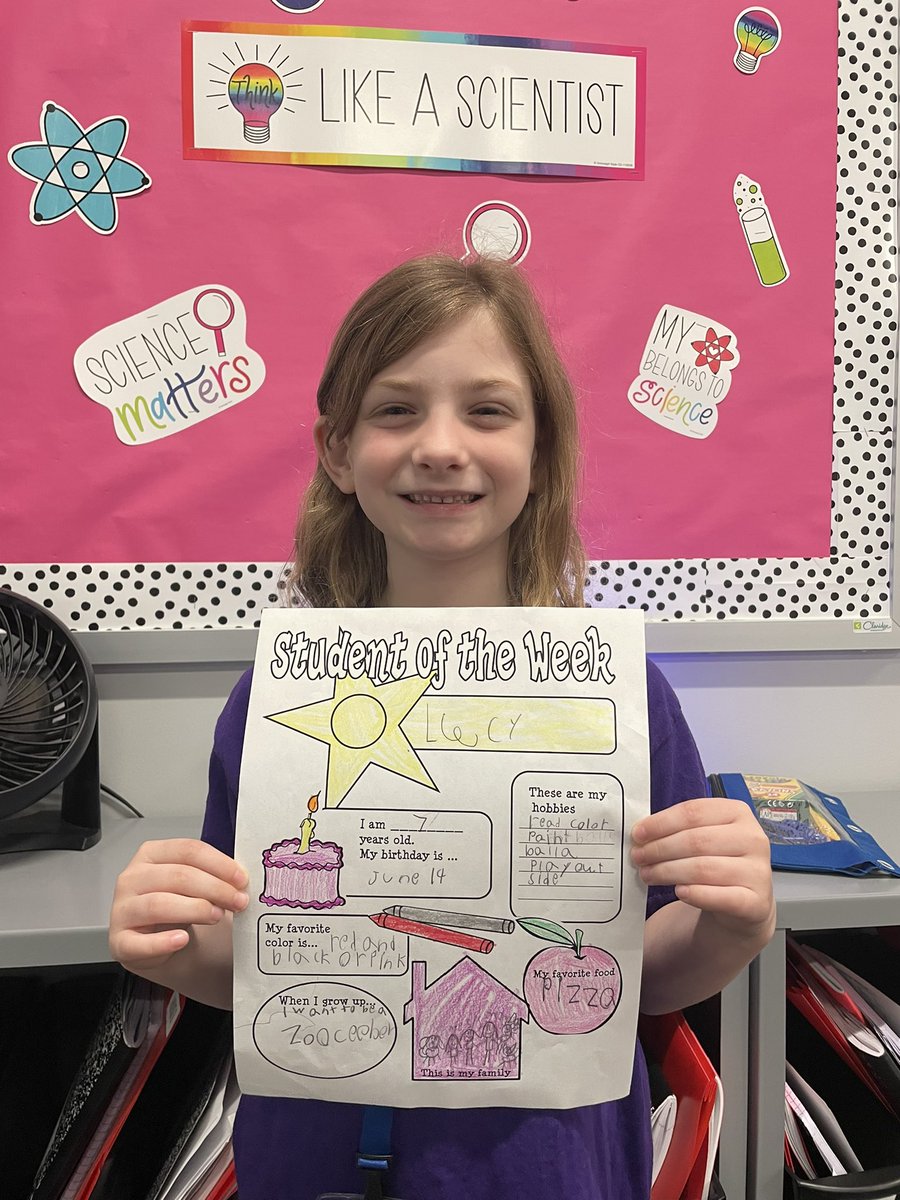 Think LIKE A SCIENTIST
SCIENCE
matters
MY
BELONGS TO
science
Student of the Week
Lucy
I am 7
years old.
My birthday is ...
June 14
These are my
hobbies
read color
paint
balla
play out
side
My favorite
color is... red and
black or pink
My favorite food
pizza
When I grow up...
I want to be a
zooceeber
This is my family